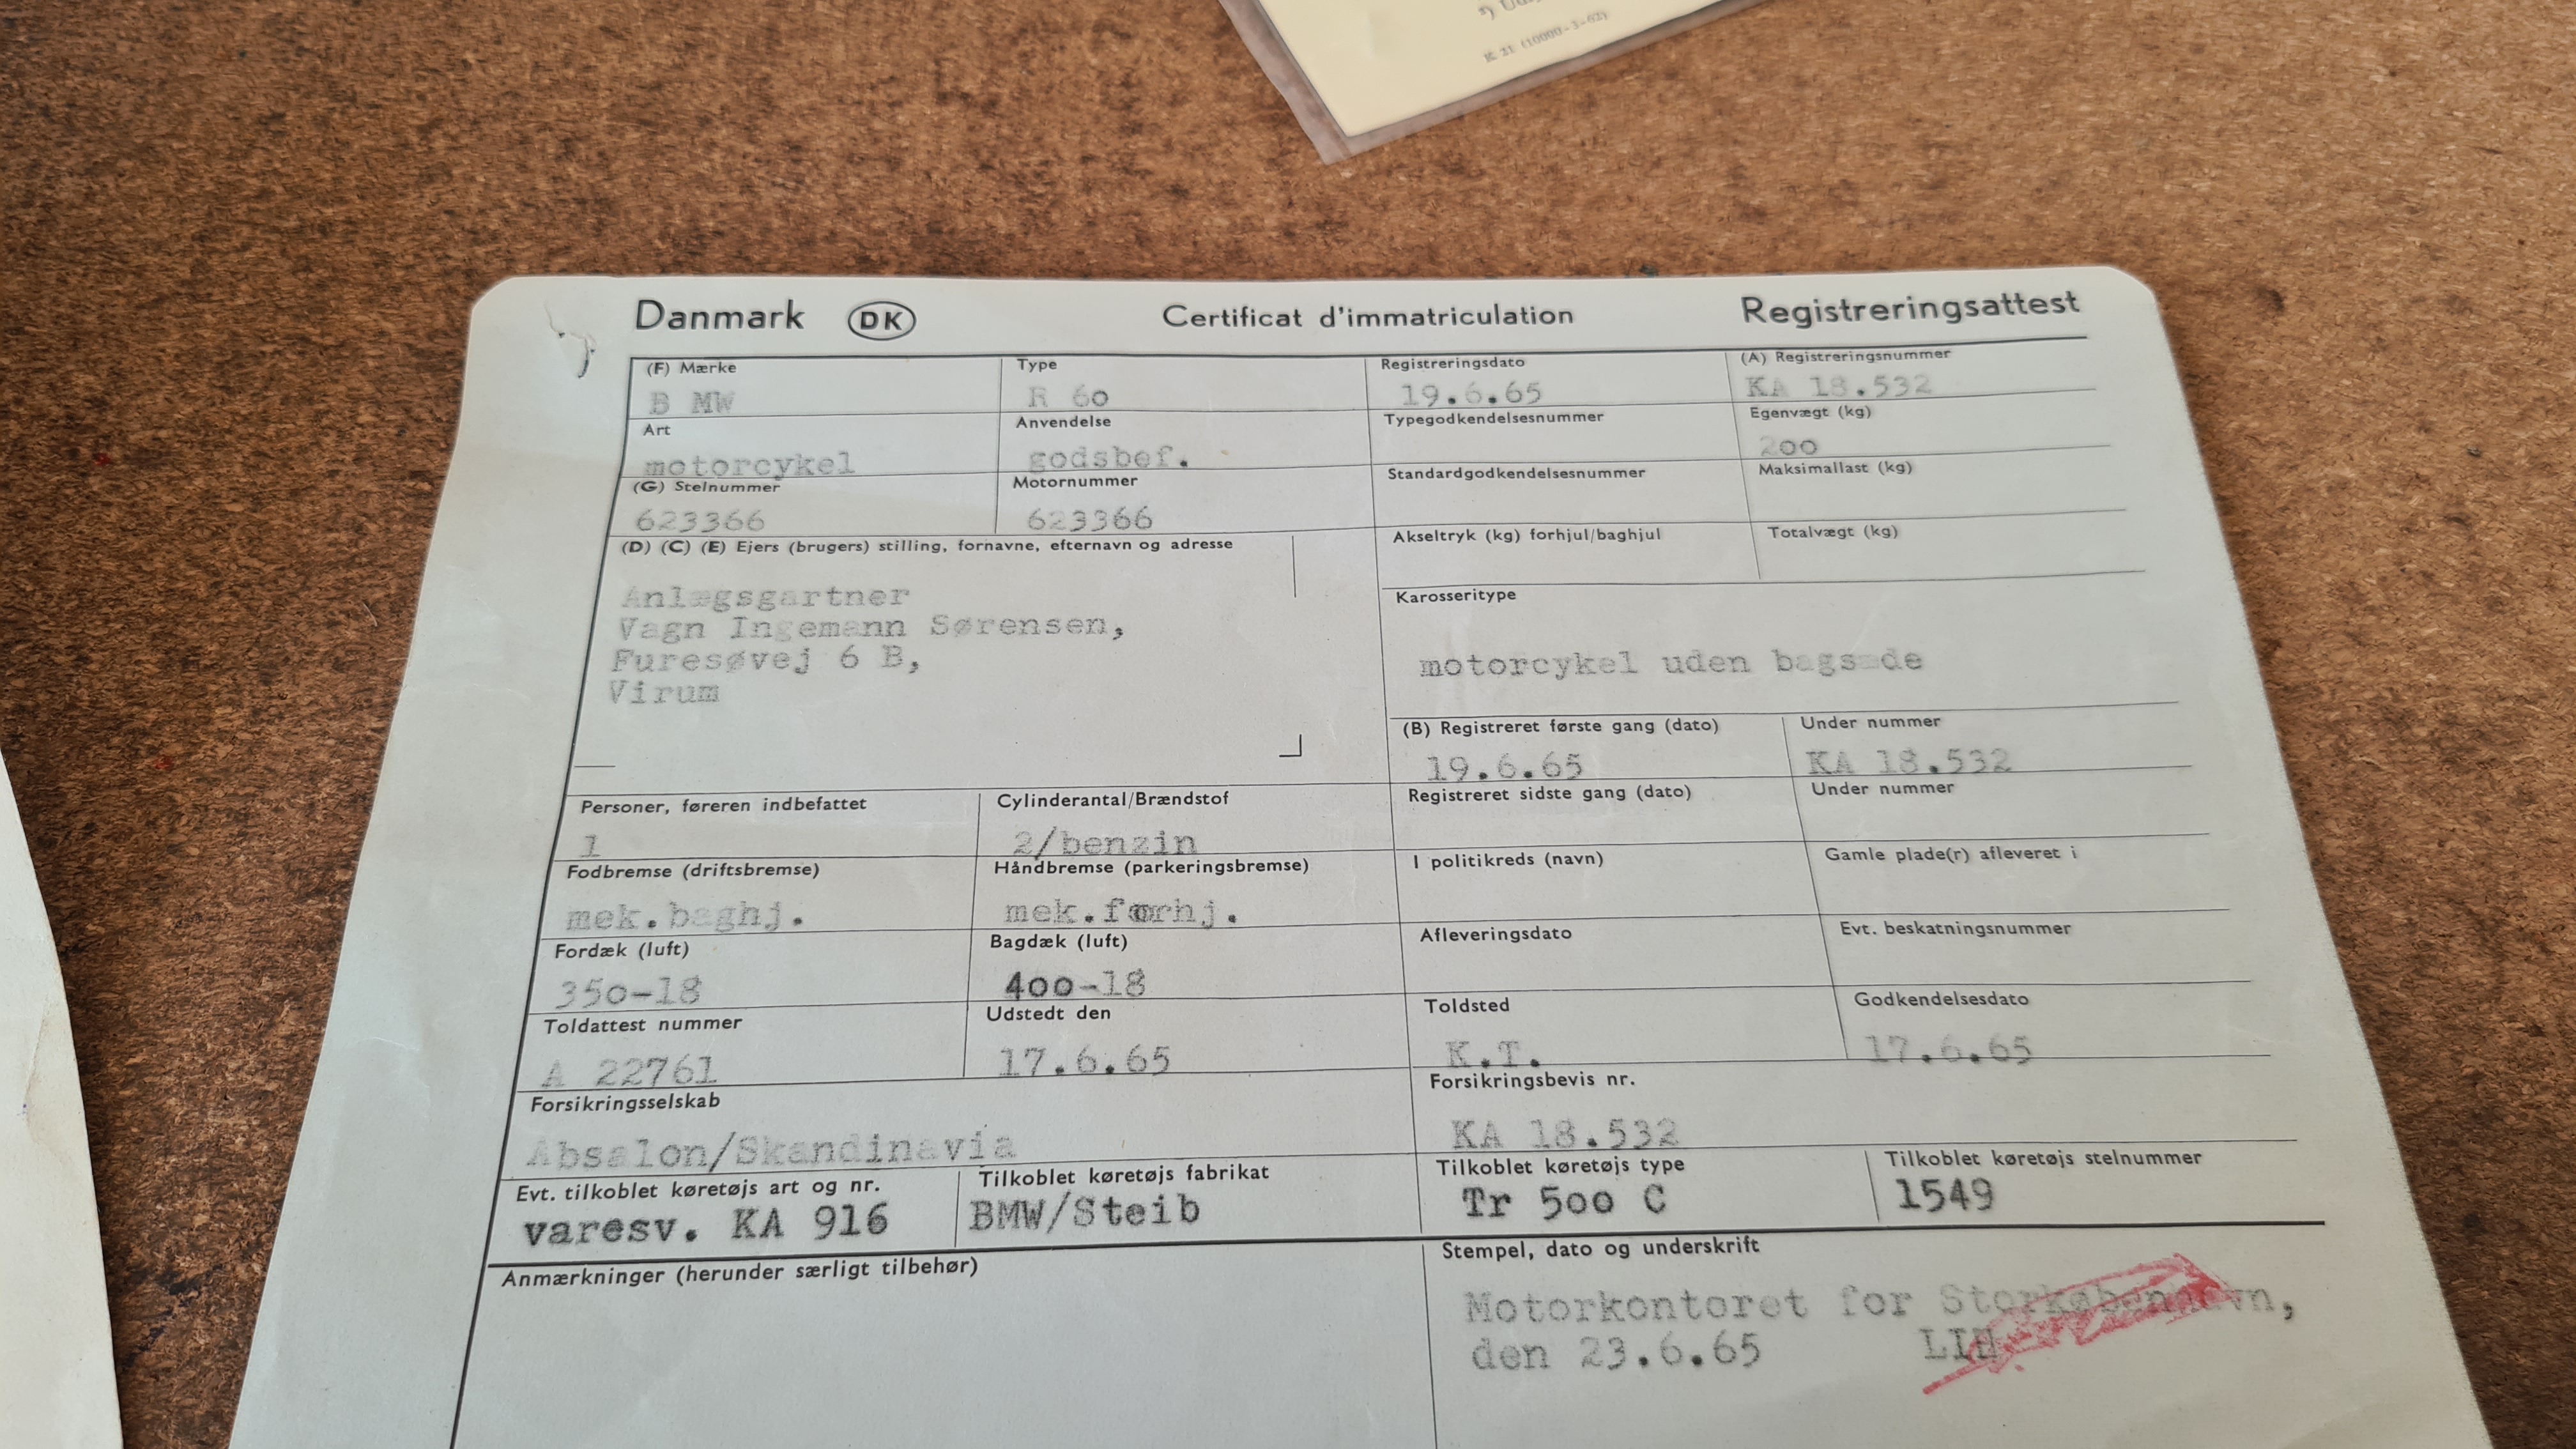 K 21 (10000-3-62)
Danmark DK Certificat d'immatriculation Registreringsattest
(F) Mærke Type Registreringsdato (A) Registreringsnummer
B MW R 60 19.6.65 KA 18.532
Art Anvendelse Typegodkendelsesnummer Egenvægt (kg)
motorcykel godsbef. 200
(G) Stelnummer Motornummer Standardgodkendelsesnummer Maksimallast (kg)
623366 623366
(D) (C) (E) Ejers (brugers) stilling, fornavne, efternavn og adresse Akseltryk (kg) forhjul/baghjul Totalvægt (kg)
Anlægsgartner
Vagn Ingemann Sørensen,
Furesøvej 6 B,
Virum
Karosseritype
motorcykel uden bagsæde
(B) Registreret første gang (dato) Under nummer
19.6.65 KA 18.532
Personer, føreren indbefattet Cylinderantal/Brændstof Registreret sidste gang (dato) Under nummer
1 2/benzin
Fodbremse (driftsbremse) Håndbremse (parkeringsbremse) I politikreds (navn) Gamle plade(r) afleveret i
mek.baghj. mek.forhj.
Fordæk (luft) Bagdæk (luft) Afleveringsdato Evt. beskatningsnummer
350-18 400-18
Toldattest nummer Udstedt den Toldsted Godkendelsesdato
A 22761 17.6.65 K.T. 17.6.65
Forsikringsselskab Forsikringsbevis nr.
Absalon/Skandinavia KA 18.532
Evt. tilkoblet køretøjs art og nr. Tilkoblet køretøjs fabrikat Tilkoblet køretøjs type Tilkoblet køretøjs stelnummer
varesv. KA 916 BMW/Steib Tr 500 C 1549
Anmærkninger (herunder særligt tilbehør) Stempel, dato og underskrift
Motorkontoret for Storkøbenhavn,
den 23.6.65